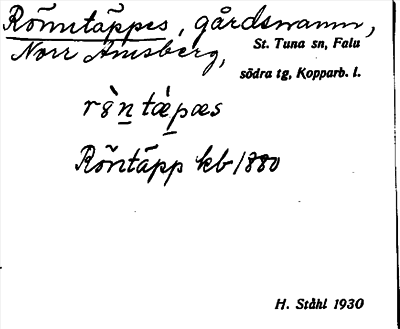 Rönntäppes, gårdsnamn,
Norr Amsberg, St. Tuna sn, Falu
södra tg, Kopparb. l.
rö̀n tæ̀pæs
Röntäpp kb 1880
H. Ståhl 1930